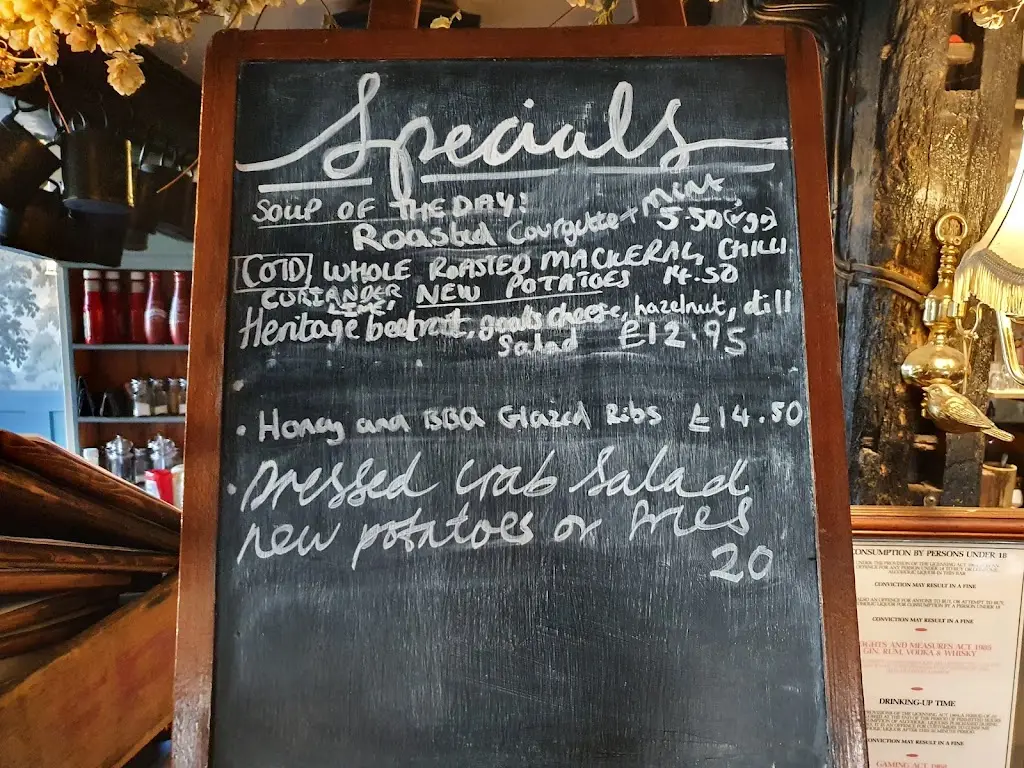 Specials
SOUP OF THE DAY:
Roasted Courgette + Mint 5.50 (vg)
COLD WHOLE ROASTED MACKERAL, CHILLI
CORIANDER, LIME, NEW POTATOES 14.50
Heritage beetroot, goats cheese, hazelnut, dill
Salad £12.95
• Honey and BBQ Glazed Ribs £14.50
• Dressed Crab Salad
new potatoes or fries
20
CONSUMPTION BY PERSONS UNDER 18
CONVICTION MAY RESULT IN A FINE
CONVICTION MAY RESULT IN A FINE
GHTS AND MEASURES ACT 1985
GIN, RUM, VODKA & WHISKY
DRINKING-UP TIME
CONVICTION MAY RESULT IN A FINE
GAMING ACT 1968